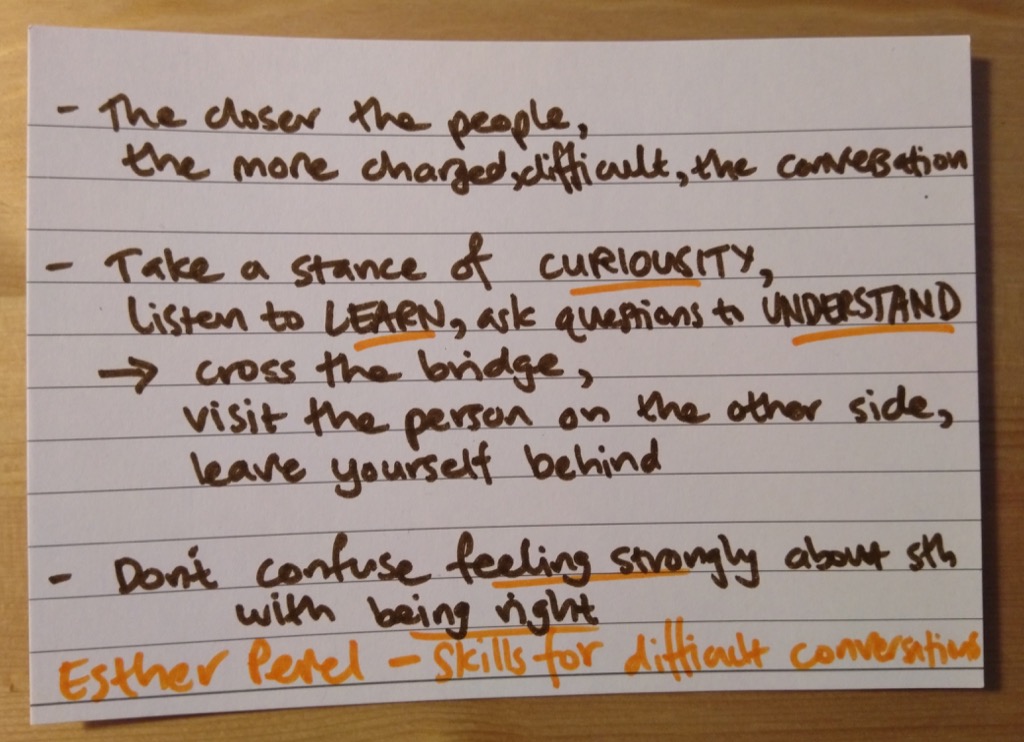 - The closer the people,
the more charged, difficult, the conversation
- Take a stance of CURIOUSITY,
listen to LEARN, ask questions to UNDERSTAND
→ cross the bridge,
visit the person on the other side,
leave yourself behind
- Don't confuse feeling strongly about sth
with being right
Esther Perel - Skills for difficult conversations